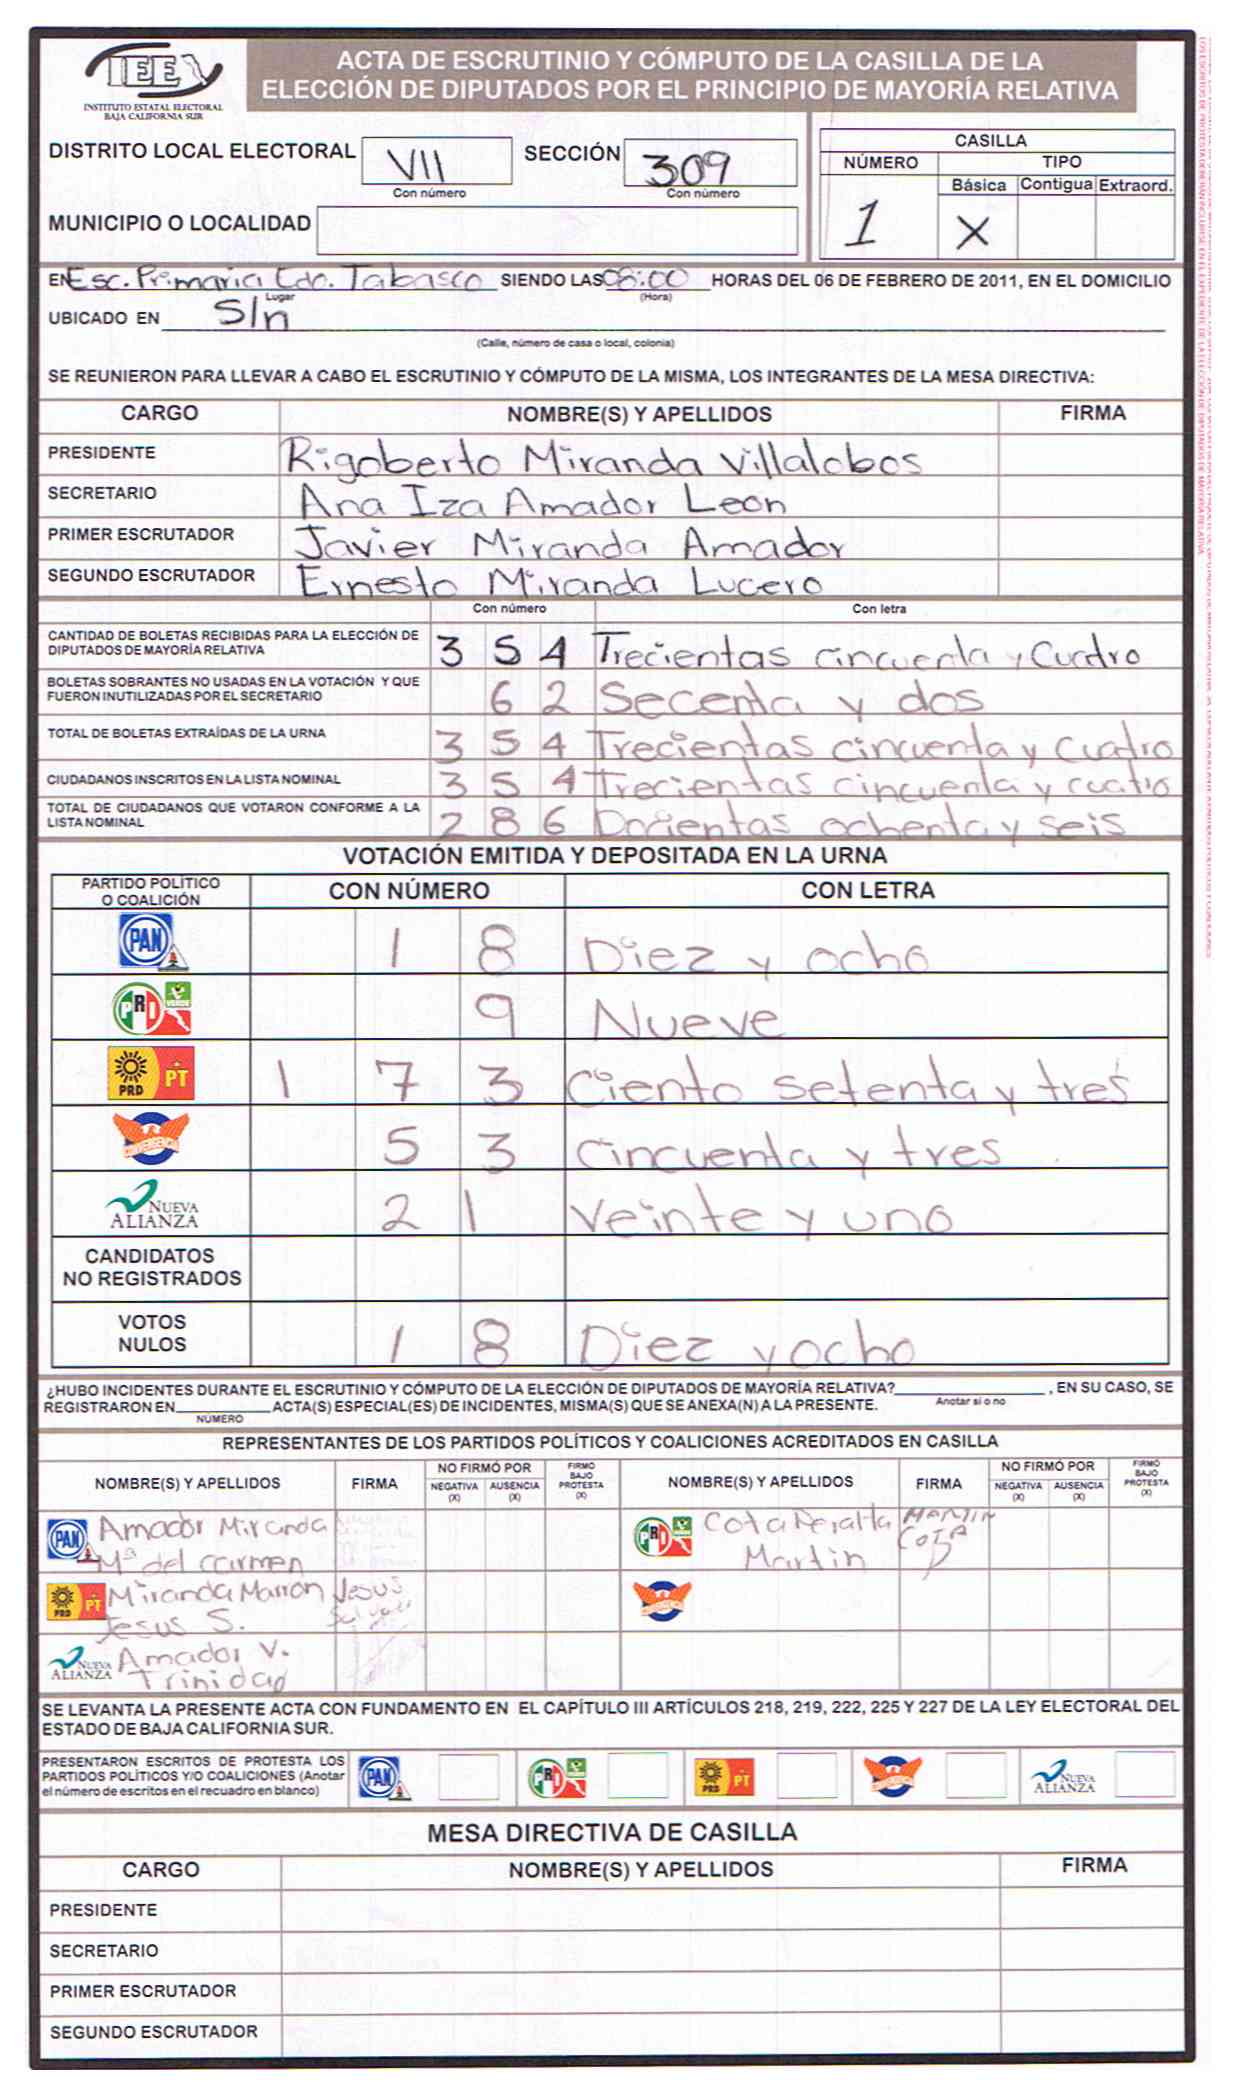 IEE
INSTITUTO ESTATAL ELECTORAL
BAJA CALIFORNIA SUR
ACTA DE ESCRUTINIO Y CÓMPUTO DE LA CASILLA DE LA
ELECCIÓN DE DIPUTADOS POR EL PRINCIPIO DE MAYORÍA RELATIVA
DISTRITO LOCAL ELECTORAL VII SECCIÓN 309
Con número Con número
MUNICIPIO O LOCALIDAD
CASILLA
NÚMERO TIPO
Básica Contigua Extraord.
1 X
EN Esc. Primaria Edo. Tabasco SIENDO LAS 08:00 HORAS DEL 06 DE FEBRERO DE 2011, EN EL DOMICILIO
Lugar (Hora)
UBICADO EN S/n
(Calle, número de casa o local, colonia)
SE REUNIERON PARA LLEVAR A CABO EL ESCRUTINIO Y CÓMPUTO DE LA MISMA, LOS INTEGRANTES DE LA MESA DIRECTIVA:
CARGO NOMBRE(S) Y APELLIDOS FIRMA
PRESIDENTE Rigoberto Miranda Villalobos
SECRETARIO Ana Iza Amador Leon
PRIMER ESCRUTADOR Javier Miranda Amador
SEGUNDO ESCRUTADOR Ernesto Miranda Lucero
Con número Con letra
CANTIDAD DE BOLETAS RECIBIDAS PARA LA ELECCIÓN DE
DIPUTADOS DE MAYORÍA RELATIVA 3 5 4 Trecientas cincuenta y Cuatro
BOLETAS SOBRANTES NO USADAS EN LA VOTACIÓN Y QUE
FUERON INUTILIZADAS POR EL SECRETARIO 6 2 Secenta y dos
TOTAL DE BOLETAS EXTRAÍDAS DE LA URNA 3 5 4 Trecientas cincuenta y Cuatro
CIUDADANOS INSCRITOS EN LA LISTA NOMINAL 3 5 4 Trecientas cincuenta y cuatro
TOTAL DE CIUDADANOS QUE VOTARON CONFORME A LA
LISTA NOMINAL 2 8 6 Docientas ochenta y seis
VOTACIÓN EMITIDA Y DEPOSITADA EN LA URNA
PARTIDO POLÍTICO
O COALICIÓN CON NÚMERO CON LETRA
PAN 1 8 Diez y ocho
PRI VERDE 9 Nueve
PRD PT 1 7 3 Ciento setenta y tres
CONVERGENCIA 5 3 cincuenta y tres
NUEVA ALIANZA 2 1 veinte y uno
CANDIDATOS
NO REGISTRADOS
VOTOS
NULOS 1 8 Diez y ocho
¿HUBO INCIDENTES DURANTE EL ESCRUTINIO Y CÓMPUTO DE LA ELECCIÓN DE DIPUTADOS DE MAYORÍA RELATIVA? , EN SU CASO, SE
Anotar si o no
REGISTRARON EN ACTA(S) ESPECIAL(ES) DE INCIDENTES, MISMA(S) QUE SE ANEXA(N) A LA PRESENTE.
NÚMERO
REPRESENTANTES DE LOS PARTIDOS POLÍTICOS Y COALICIONES ACREDITADOS EN CASILLA
NOMBRE(S) Y APELLIDOS FIRMA NO FIRMÓ POR NEGATIVA (X) AUSENCIA (X) FIRMÓ BAJO PROTESTA (X) NOMBRE(S) Y APELLIDOS FIRMA NO FIRMÓ POR NEGATIVA (X) AUSENCIA (X) FIRMÓ BAJO PROTESTA (X)
PAN Amador Miranda PRI VERDE Cota Peralta MARTIN
Mª del carmen Martin COTA
PRD PT Miranda Marron Jesus CONVERGENCIA
Jesus S.
NUEVA ALIANZA Amador V.
Trinidad
SE LEVANTA LA PRESENTE ACTA CON FUNDAMENTO EN EL CAPÍTULO III ARTÍCULOS 218, 219, 222, 225 Y 227 DE LA LEY ELECTORAL DEL
ESTADO DE BAJA CALIFORNIA SUR.
PRESENTARON ESCRITOS DE PROTESTA LOS
PARTIDOS POLÍTICOS Y/O COALICIONES (Anotar
el número de escritos en el recuadro en blanco)
PAN PRI VERDE PRD PT CONVERGENCIA NUEVA ALIANZA
MESA DIRECTIVA DE CASILLA
CARGO NOMBRE(S) Y APELLIDOS FIRMA
PRESIDENTE
SECRETARIO
PRIMER ESCRUTADOR
SEGUNDO ESCRUTADOR